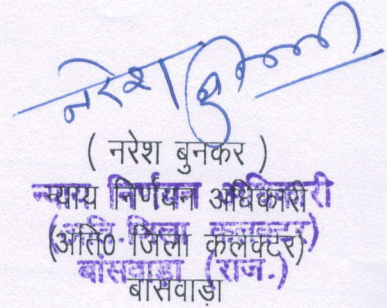 नरेश
( नरेश बुनकर )
न्याय निर्णयन अधिकारी
(अति0 जिला कलक्टर)
बांसवाड़ा (राज.)
बांसवाड़ा